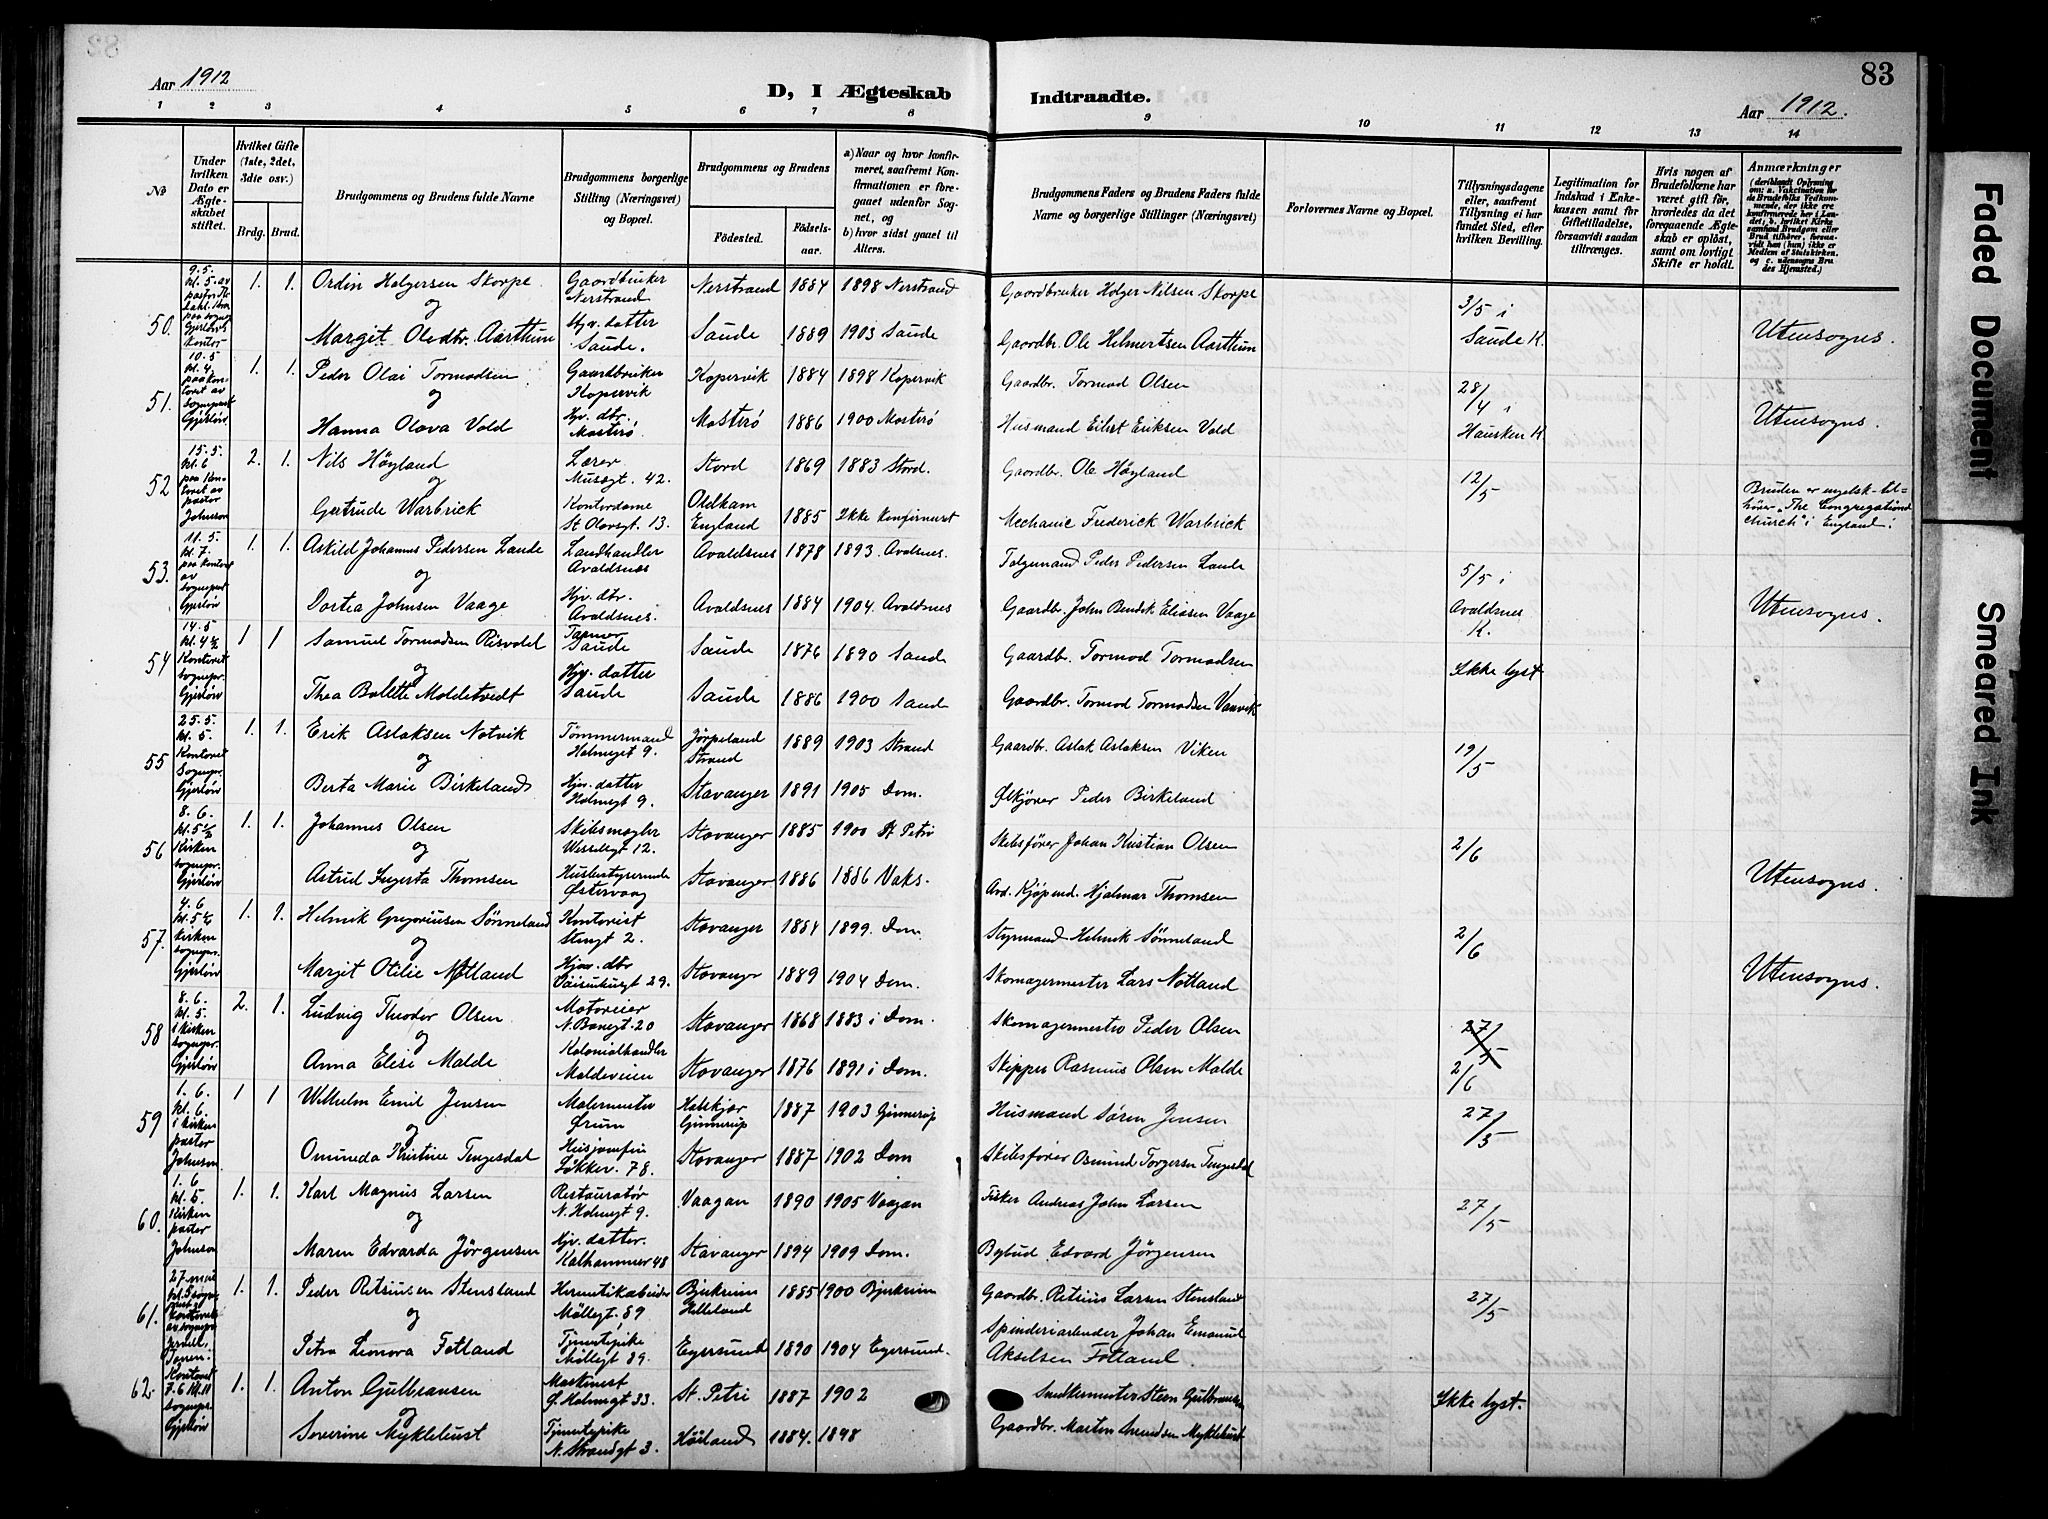 Aar 1912
D, I Ægteskab
Indtraadte.
Aar 1912.
83
1 2 3 4 5 6 7 8 9 10 11 12 13 14
No
Under hvilken Dato er Ægteskabet stiftet.
Hvilket Gifte (1ste, 2det, 3die osv.)
Brdg. Brud.
Brudgommens og Brudens fulde Navne
Brudgommens borgerlige Stilling (Næringsvei) og Bopæl.
Brudgommens og Brudens
Födested.
Födselsaar.
a) Naar og hvor konfirmeret, saafremt Konfirmationen er foregaaet udenfor Sognet, og
b) hvor sidst gaaet til Alters.
Brudgommens Faders og Brudens Faders fulde Navne og borgerlige Stillinger (Næringsvei)
Forlovernes Navne og Bopæl.
Tillysningsdagene eller, saafremt Tillysning ei har fundet Sted, efter hvilken Bevilling.
Legitimation for Indskud i Enkekassen samt for Giftetilladelse, forsaavidt saadan tiltrænges.
Hvis nogen af Brudefolkene har været gift för, hvorledes da det foregaaende Ægteskab er oplöst, samt om lovligt Skifte er holdt.
Anmærkninger
50. 1. 1. Ordin Holgersen Skorpe Gaardbruker Nerstrand Nerstrand 1884 1898 Nerstrand Gaardbruker Holger Nilsen Skorpe 3/5 i Saude K. Utensogns.
og
Margit Oledtr. Aarthun Hjv. datter Saude. Saude 1889 1903 Saude Gaardbr. Ole Helmertsen Aarthun
51. 10.5 kl. 4. 1. 1. Peder Olai Tormodsen Gaardbruker Kopervik Kopervik 1884 1898 Kopervik Gaardbr. Tormod Olsen 28/4 i Hausken K. Utensogns.
og
Hanna Olava Vold Hjv. dtr. Mosterö. Mosterö 1886 1900 Mosterö Husmand Eilert Eriksen Vold
52 15.5. kl. 6 paa Kontoret av pastor Johnson 2. 1. Nils Höyland Lærer Musegt. 42. Stord 1869 1883 Stord. Gaardbr. Ole Höyland 12/5
og
Gertrude Warbrick Kontordame St Olavsgt. 13. Oldham England 1885 Ikke konfirmeret Mechanic Frederick Warbrick Bruden er engelsk - tilhører "The Congregational church" i England.
53. 11.5. kl. 7. paa kontoret av sognepr. Gjerløv 1. 1. Askild Johannes Pedersen Lande Landhandler Avaldsnes Avaldsnes 1878 1893. Avaldsnes. Folgemand Peder Pedersen Lande 5/5 i Avaldsnes K. Utensogns.
og
Dortea Johnsen Vaage Hjv. dtr. Avaldsnes. Avaldsnes 1884 1904. Avaldsnes Gaardbr. John Bendik Eliasen Vaage
54 14.5 kl. 4½ Kontoret sognepr. Gjerløv 1 1 Samuel Tormodsen Risvold Saude Saude 1876 1890 Sande Gaardbr. Tormod Tormodsen Ikke lyst
og
Thea Bolette Moldetvedt Hjv. datter Saude Saude 1886 1900 Sande Gaardbr. Tormod Tormodsen Vanvik
55 25.5. kl. 5. Kontoret Sognepr. Gjerløv 1. 1. Erik Aslaksen Notvik Tömmermand Holmegt 9. Jørpeland Strand 1889 1903 Strand Gaardbr. Aslak Aslaksen Viken 19/5
og
Berta Marie Birkeland Hjv. datter Holmegt 9. Stavanger 1891 1905 Dom. Ølkjörer Peder Birkeland
56 8.6. kl. 5½ Kirken sognepr. Gjerløv 1. 1. Johannes Olsen Skibsmægler Wesselsgt 12. Stavanger 1885 1900 St Petri Skibsfører Johan Kristian Olsen 2/6
og
Astrud Ingerta Thomsen Husbestyrerinde Østervaag Stavanger 1886 1886 Vaks. Avd. Kjøpmd. Hjalmar Thomsen Utensogns.
57. 4.6 kl. 5½ kirken sognepr. Gjerløv 1. 1. Helmik Gregoriusen Sönneland Kontorist Stengt 2. Stavanger 1884 1899. Dom. Styrmand Helmik Sönneland 2/6
og
Margit Otilie Nøtland Hjem. dtr 29. Stavanger 1889 1904 Dom. Skomagermester Lars Nøtland Utensogns.
58 8.6. kl. 5. i kirken sognepr. Gjerløv 2. 1. Ludvig Theodor Olsen Motoreier N. Banegt. 20 Stavanger 1868 1883 i Dom. Skomagermester Peder Olsen 27/5 2/6
og
Anna Elise Malde Kolonialhandler Maldeveien Stavanger 1876 1891 i Dom. Skipper Rasmus Olsen Malde
59 1.6. kl. 6. i kirken pastor Johnson 1 1 Wilhelm Emil Jensen Malermester Ørum Ginnerup 1887 1903 Ginnerup Husmand Sören Jensen 27/5
og
Omunda Kristine Tengesdal Husjomfru Løkkev. 78. Stavanger 1887 1902 Dom Skibsfører Osmund Torgersen Tengesdal
60. 1.6 kl. 5. Kirken pastor Johnson 1. 1. Karl Magnus Larsen Restauratør N. Holmegt 9. Vaagan 1890 1905 Vaagan Fisker Andreas John Larsen 27/5
og
Maren Edvarda Jörgensen Hjv. datter. Kalhammer 48 Stavanger 1894 1909 Dom. Bybud Edvard Jörgensen
61. 27 mai 1. 1. Peder Retsiusen Stensland Hermetikarbeider Möllegt. 89 Bjerkreim Helleland 1885 1900 Bjerkreim Gaardbr. Retsius Larsen Stensland 27/5
og
Petra Leonora Fotland Tjenestepike Möllegt 89. Egersund 1890 1904 Egersund. Spinderiarbeider Johan Emanuel Akselsen Fotland.
62. Kontoret 7.6 kl. 11 sognepr. Gjerløv 1. 1. Anton Gulbransen Maskinist Ø. Holmegt 33. St. Petri 1887 1902 Snedkermester Steen Gulbransen Ikke lyst.
og
Severine Myklebust Tjenestepike N. Strandgt 3. Höiland 1884. 1898 Gaardbr. Martin Myklebust
Faded Document
Smeared Ink